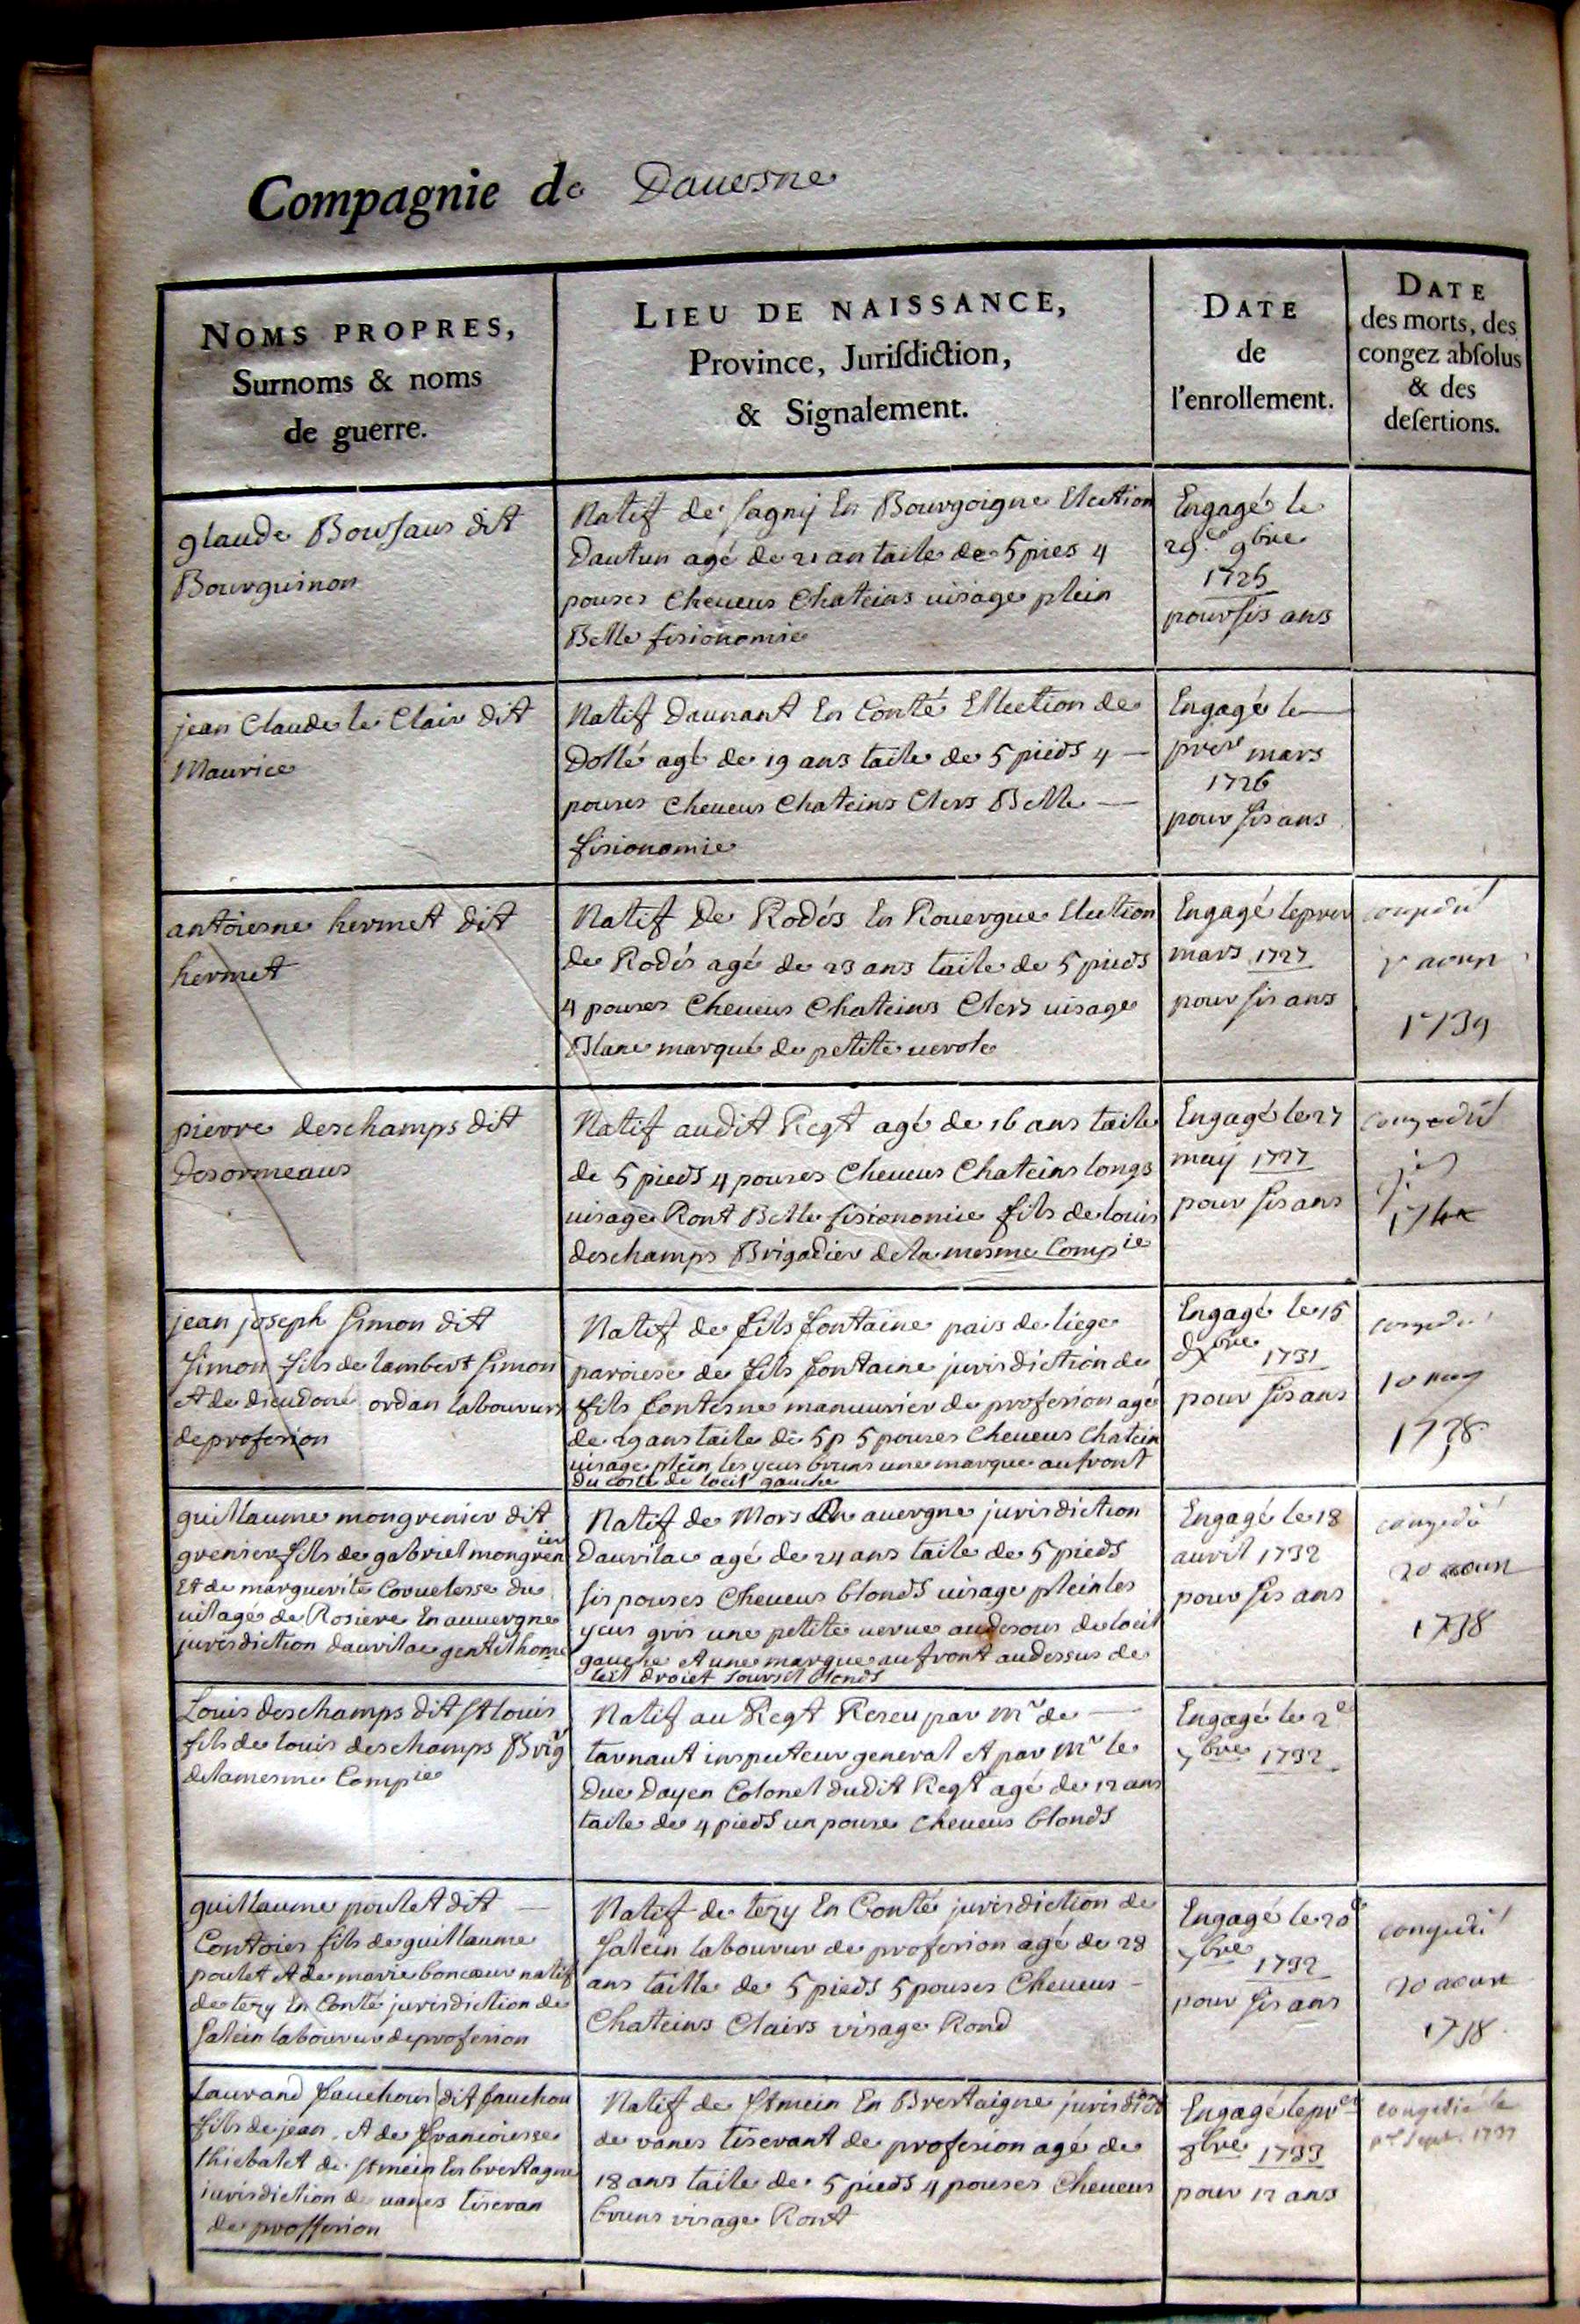 Compagnie de Dauesne
NOMS PROPRES,
Surnoms & noms
de guerre.
LIEU DE NAISSANCE,
Province, Jurisdiction,
& Signalement.
DATE
de
l'enrollement.
DATE
des morts, des
congez absolus
& des
desertions.
glaude Boussaus dit
Bourguinon
Natif de sagnij En Bourgoigne Election
Dautun agé de 21 an taile de 5 pies 4
pouses Cheueus Chateins uisage plein
Belle fisionomie
Engagé le
9bre
pour sis ans
jean Claude le Clair dit
Maurice
Natif Daunant En Conté Ellection de
Dollé agé de 19 ans taile de 5 pieds 4 —
pouses Cheueus Chateins Clers Belle —
fisionomie
Engagé le —
pier mars
1726
pour sis ans
antoiesne hermet dit
hermet
Natif De Rodés En Rouergue Election
de Rodés agé de 23 ans taile de 5 pieds
4 pouses Cheueus Chateins Clers uisage
Blanc marqué de petite uerole
Engagé le pier
mars 1727
pour sis ans
congedié
1739
pierre deschamps dit
Desormeaus
Natif audit Regt agé de 16 ans taile
de 5 pieds 4 pouses Cheueus Chateins longs
uisage Ront Belle fisionomie fils de louis
deschamps Brigadier de la mesme Compie
Engagé le 27
maij 1727
pour sis ans
congedié
jean joseph Simon dit
Simon fils de lambert Simon
et de dieudoné ordan laboureur
de profesion
Natif de fils fontaine pais de liege
paroiese de fils fontaine jurisdiction de
fils fontesne manuurier de profesion agé
de 29 ans taile de 5 p 5 pouses Cheueus Chatein
uisage plein les yeus bruns une marque au front
du costé de loeil gauche
Engagé le 15
Xbre 1731
pour sis ans
congedié
1738
guillaume mongrenier dit
grenier fils de gabriel mongrenier
Et de marguerite Coruelesse du
uilage de Rosiere En auuergne
jurisdiction daurilac gentilhome
Natif de Mors En auergne jurisdiction
Daurilac agé de 24 ans taile de 5 pieds
sis pouses Cheueus blonds uisage plein les
yeus gris une petite uerue audesous de loeil
gauche et une marque au front audessus de
leil droiet soursil blonds
Engagé le 18
auril 1732
pour sis ans
congedié
20 aoust
1738
Louis deschamps dit St louis
fils de louis deschamps Brigr
de la mesme Compie
Natif au Regt Reseu par Mr de —
tarnaut inspecteur general et par Mr le
Duc Dayen Colonel dudit Regt agé de 12 ans
taile de 4 pieds un pouse Cheueus blonds
Engagé le 2e
7bre 1732
guillaume poulet dit —
Contoies fils de guillaume
poulet et de marie boncœur natif
de tezy En Conté jurisdiction de
Salein laboureur de profesion
Natif de tezy En Conté jurisdiction de
Salein laboureur de profesion agé de 28
ans taille de 5 pieds 5 pouses Cheueus —
Chateins Clairs visage Rond
Engagé le 20e
7bre 1732
pour sis ans
congedié
20 aoust
1738
Laurand fauchous dit fauchou
fils de jean et de franciesse
thiebalet de St mein En bretagne
jurisdiction de uanes tiseran
de proffesion
Natif de St mein En Brestaigne jurisdiction
de vanes tiserant de profesion agé de
18 ans taile de 5 pieds 4 pouses Cheueus
bruns visage Ront
Engagé le pier
8bre 1733
pour 12 ans
congedié le
per Sept. 1737